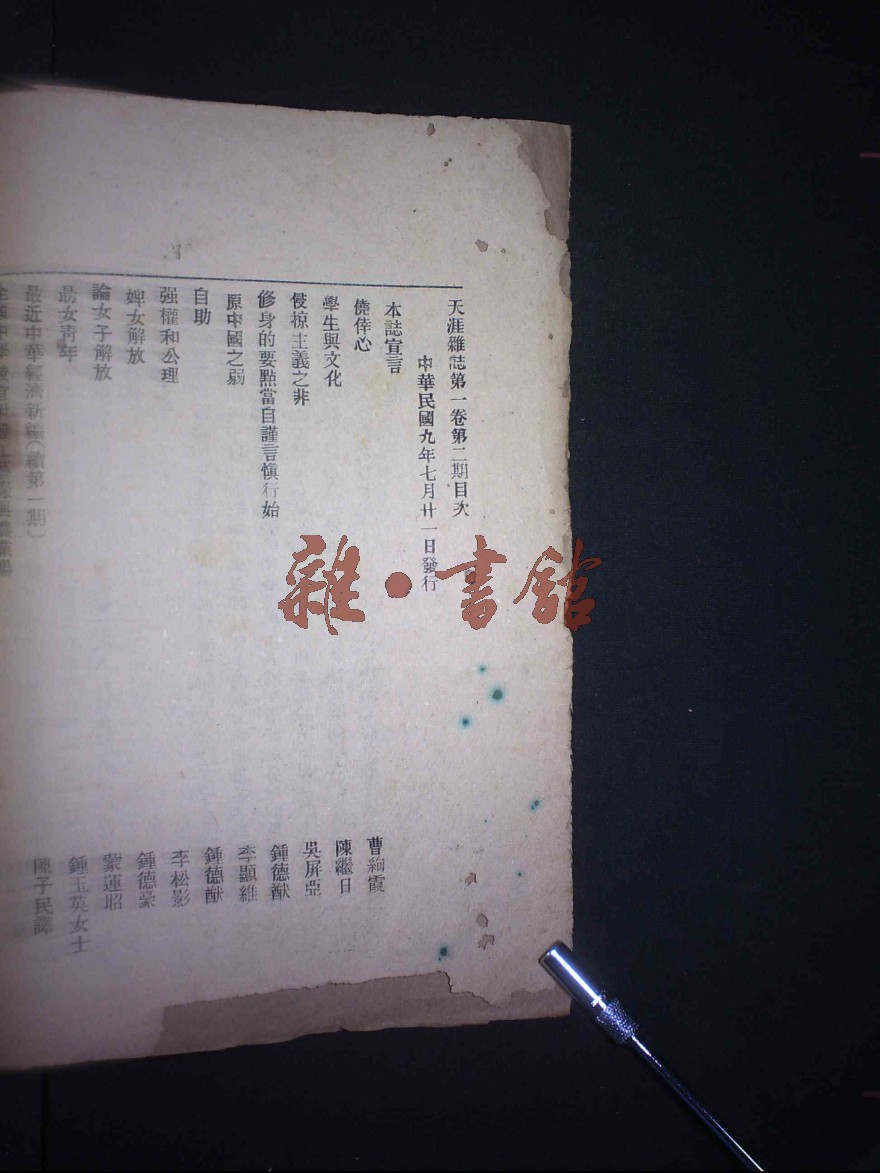 天涯雜誌第一卷第二期目次
中華民國九年七月廿一日發行
本誌宣言
僥倖心 曹絢霞
學生與文化 陳繼日
侵掠主義之非 吳屏亞
修身的要點當自謹言愼行始 鍾德猷
原中國之弱 李顯維
自助 鍾德猷
强權和公理 李松影
婢女解放 鍾德豪
論女子解放 蒙蓮昭
勗女靑年 鍾玉英女士
最近中華經濟新編(續第一期) 陳子民譯
雜·書館